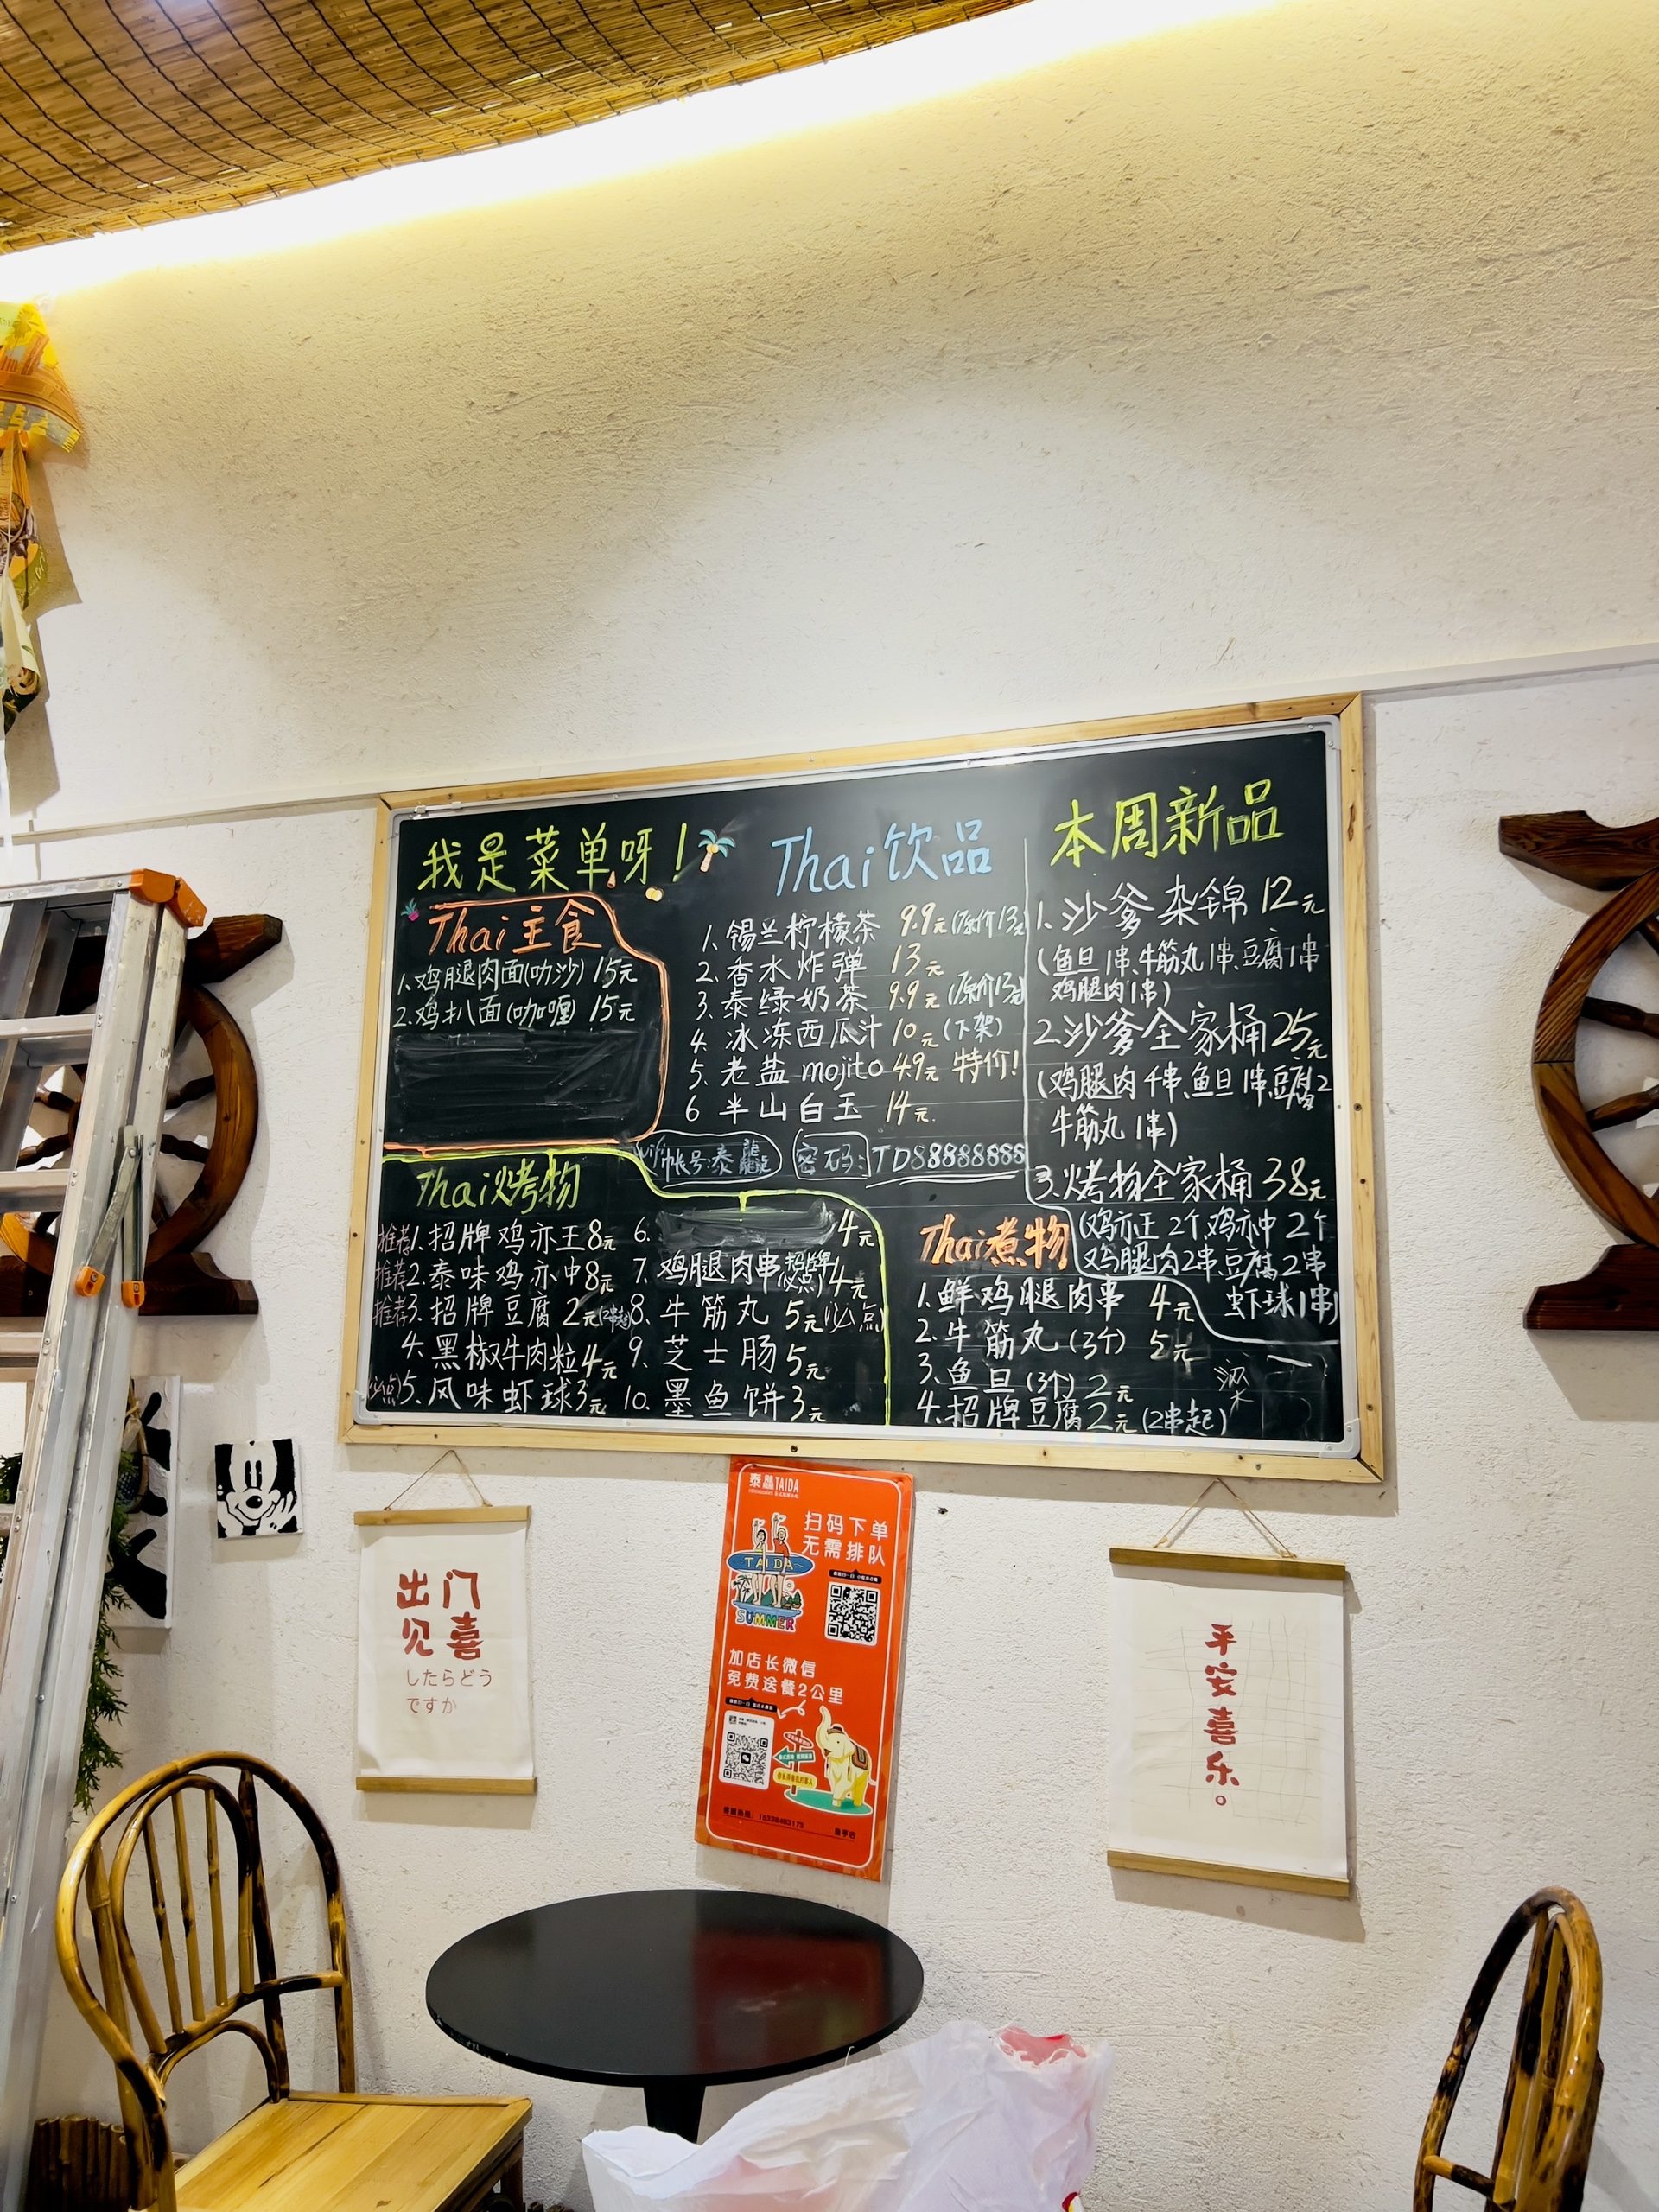 我是菜单呀！
Thai主食
1.鸡腿肉面(叻沙) 15元
2.鸡扒面(咖喱) 15元
Thai饮品
1.锡兰柠檬茶 9.9元(原价13元)
2.香水炸弹 13元
3.泰绿奶茶 9.9元(原价13元)
4.冰冻西瓜汁 10元(下架)
5.老盐mojito 4.9元 特价!
6 半山白玉 14元
帐号:泰龘
密码:TD88888888
本周新品
1.沙爹杂锦 12元
(鱼旦1串、牛筋丸1串、豆腐1串
鸡腿肉1串)
2.沙爹全家桶25元
(鸡腿肉4串、鱼旦1串、豆腐2
牛筋丸1串)
3.烤物全家桶38元
(鸡亦王2个、鸡亦中2个
鸡腿肉2串、豆腐2串
虾球1串)
Thai烤物
推荐1.招牌鸡亦王8元
推荐2.泰味鸡亦中8元
推荐3.招牌豆腐2元(2串起)
4.黑椒牛肉粒4元
(必点)5.风味虾球3元
6. 4元
7.鸡腿肉串(招牌必点)4元
8.牛筋丸 5元(必点)
9.芝士肠5元
10.墨鱼饼3元
Thai煮物
1.鲜鸡腿肉串 4元
2.牛筋丸(3个) 5元
3.鱼旦(3个)2元
4.招牌豆腐2元(2串起)
出门
见喜
したらどう
ですか
泰龘TAIDA
扫码下单
无需排队
TAIDA
SUMMER
加店长微信
免费送餐2公里
平安喜乐。